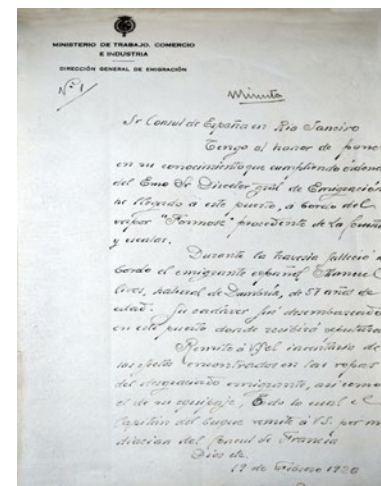 MINISTERIO DE TRABAJO, COMERCIO
E INDUSTRIA
DIRECCIÓN GENERAL DE EMIGRACIÓN
Nº 1
Minuta
Sr Consul de España en Rio Janeiro
Tengo el honor de poner
en su conocimiento que cumpliendo órdenes
del Emo Sr Director gral de Emigración
he llegado á este puerto, á bordo del
vapor "Formose" procedente de La Coruña
y escalas.
Durante la travesia falleció a
bordo el emigrante español Manuel
natural de Dumbria, de 57 años de
edad. Su cadaver fué desembarcado
en este puerto donde recibirá sepultura
Remito á VS el inventario de
los efectos encontrados en las ropas
del desgraciado emigrante, asi como
el de su equipaje, todo lo cual el
Capitán del buque remite á VS. por me
diacion del Consul de Francia
Dios etc.
19 de Febrero 1926